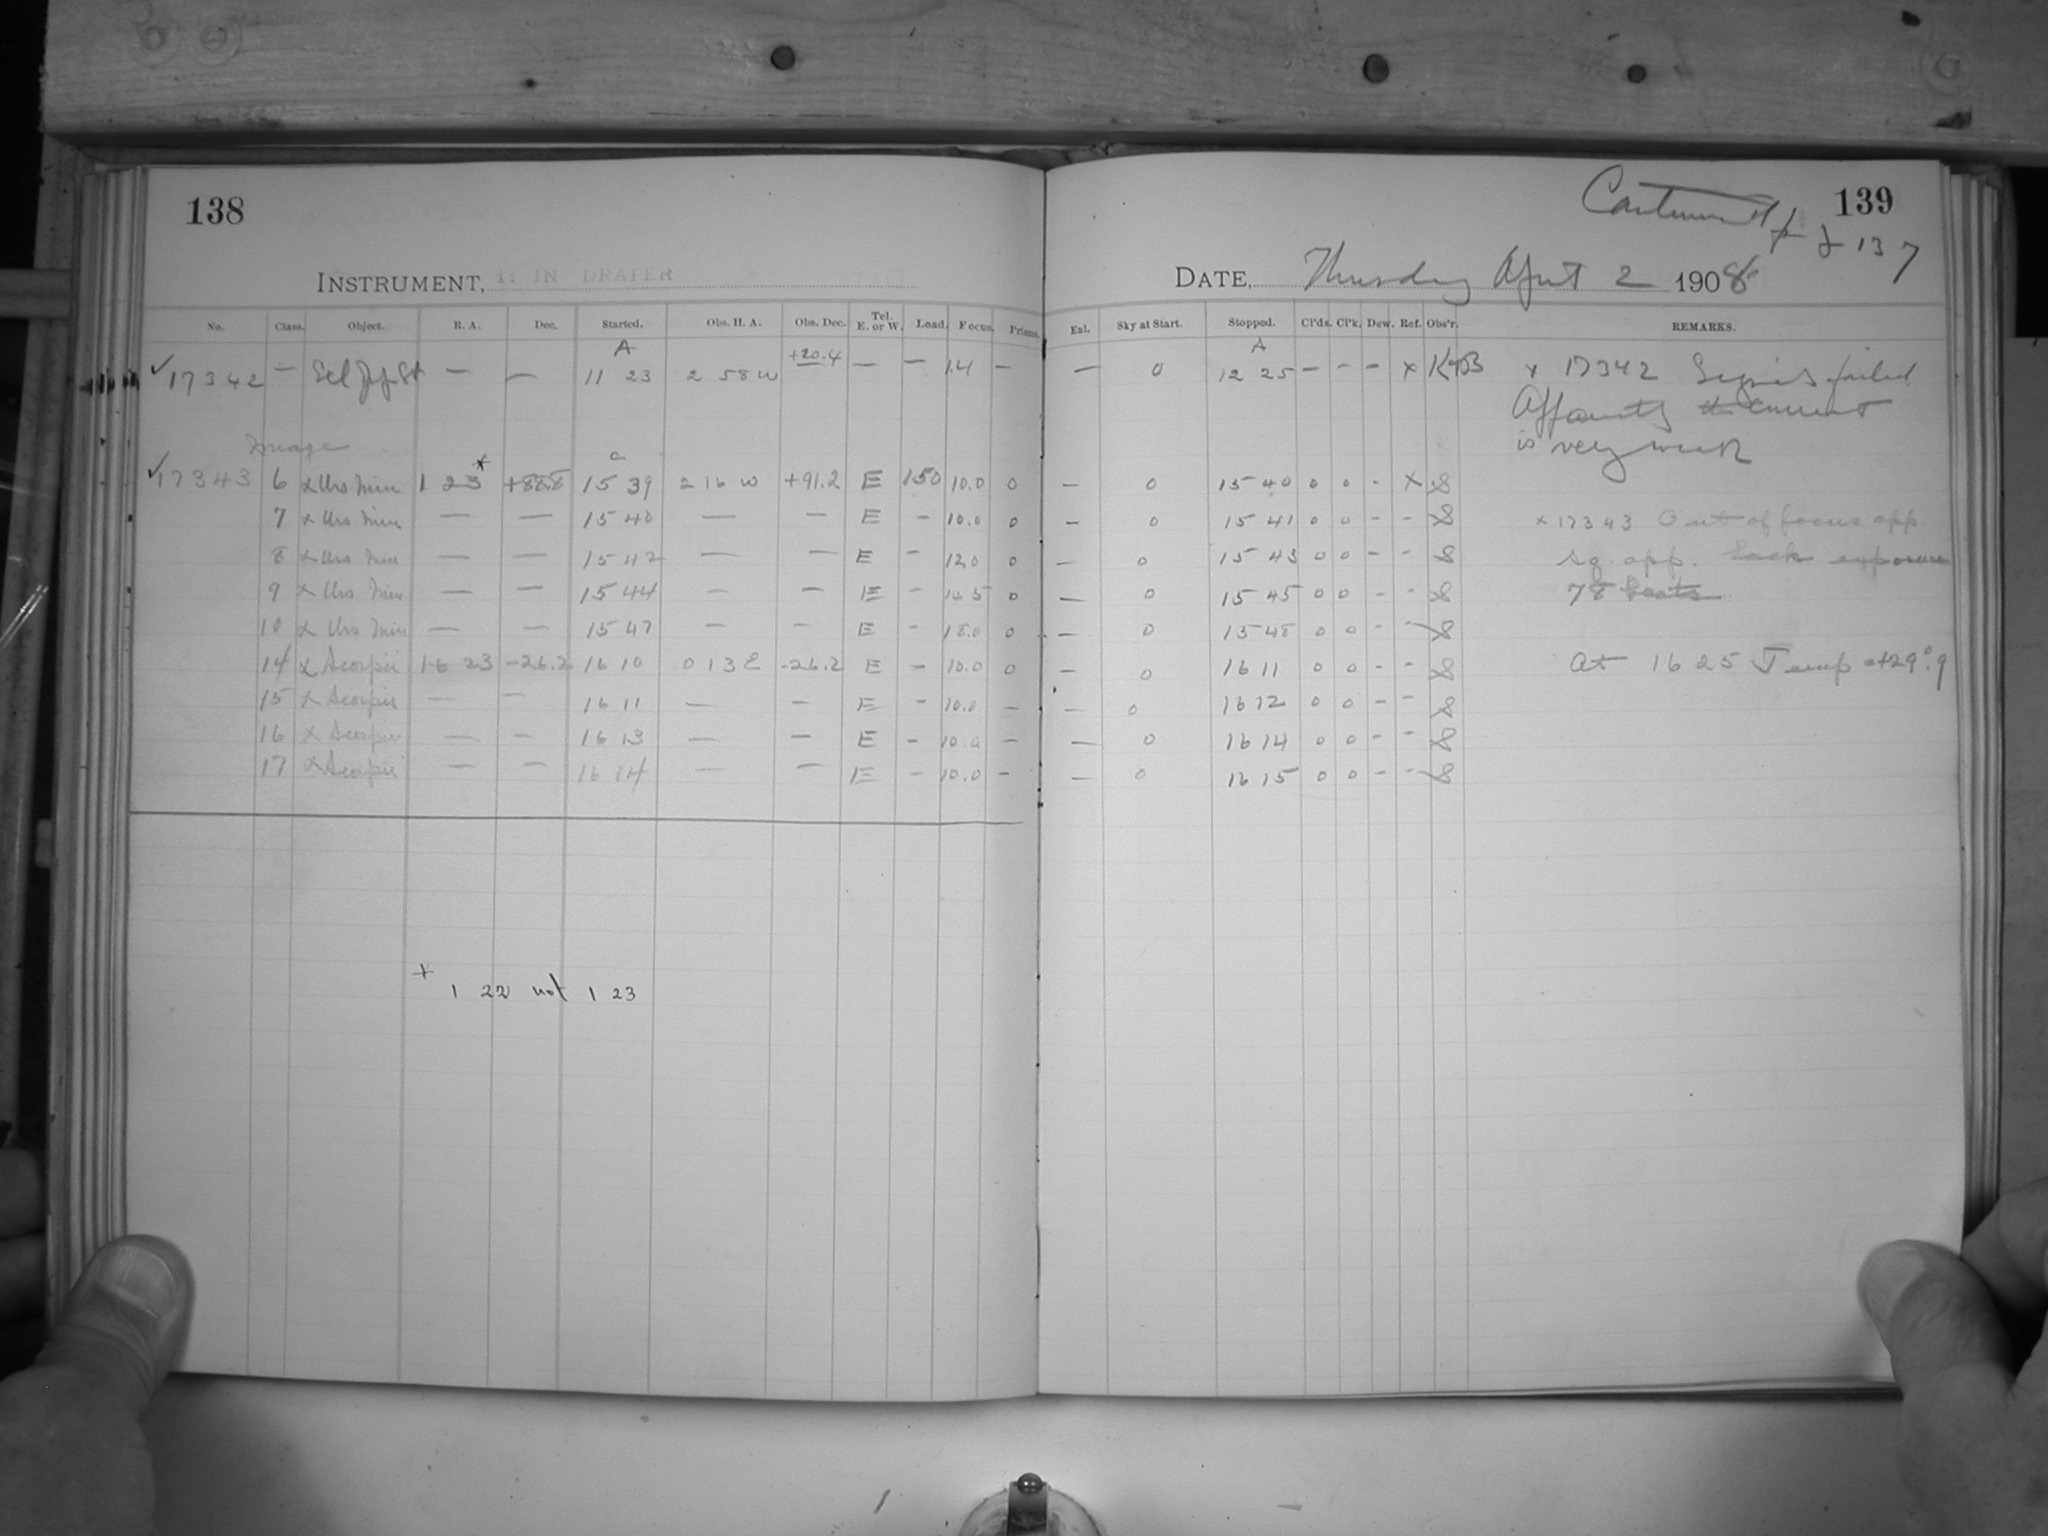 138
INSTRUMENT, 11 IN DRAPER
No. Class. Object. R. A. Dec. Started. Obs. H. A. Obs. Dec. Tel. E. or W. Load. Focus. Prisms.
A
✓17342 — — — 11 23 2 58 W +20.4 — — 1.4 —
Image
✓17343 6 α Urs Min 1 23* +88.8 15 39 2 16 W +91.2 E 150 10.0 0
7 α Urs Min — — 15 40 — — E - 10.0 0
8 α Urs Min — — 15 42 — — E - 12.0 0
9 α Urs Min — — 15 44 — — E - 14.5 0
10 α Urs Min — — 15 47 — — E - 18.0 0
14 α Scorpii 16 23 -26.2 16 10 0 13 E -26.2 E - 10.0 0
15 α Scorpii — — 16 11 — — E - 10.0 —
16 α Scorpii — — 16 13 — — E - 10.0 —
17 α Scorpii — — 16 14 — — E - 10.0 -
+ 1 22 not 1 23
139
Continued 137
DATE, Thursday April 2 1908
Enl. Sky at Start. Stopped. Cl'ds. Cl'k. Dew. Ref. Obs'r. REMARKS.
A
— 0 12 25 - - - x x 17342 failed
current
is very weak
- 0 15 40 0 0 - x S
- 0 15 41 0 0 - - S x 17343 Out of focus app.
- 0 15 43 0 0 - - S sq. app. Each exposure
- 0 15 45 0 0 - - S 78 beats
- 0 15 48 0 0 - - S
- 0 16 11 0 0 - - S At 16 25 Temp +29°.9
- 0 16 12 0 0 - - S
- 0 16 14 0 0 - - S
- 0 16 15 0 0 - - S